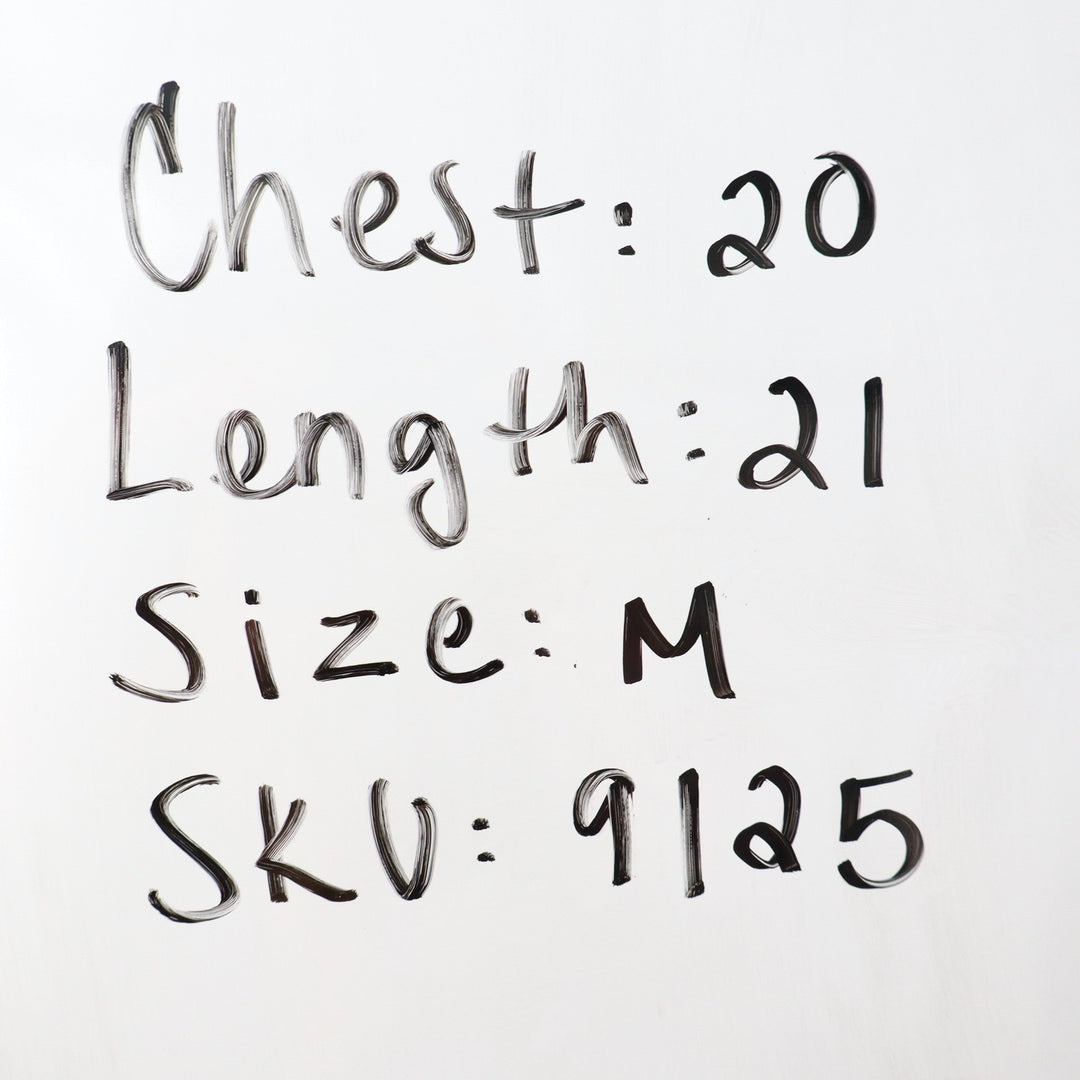 Chest: 20
Length: 21
Size: M
SKU: 9125